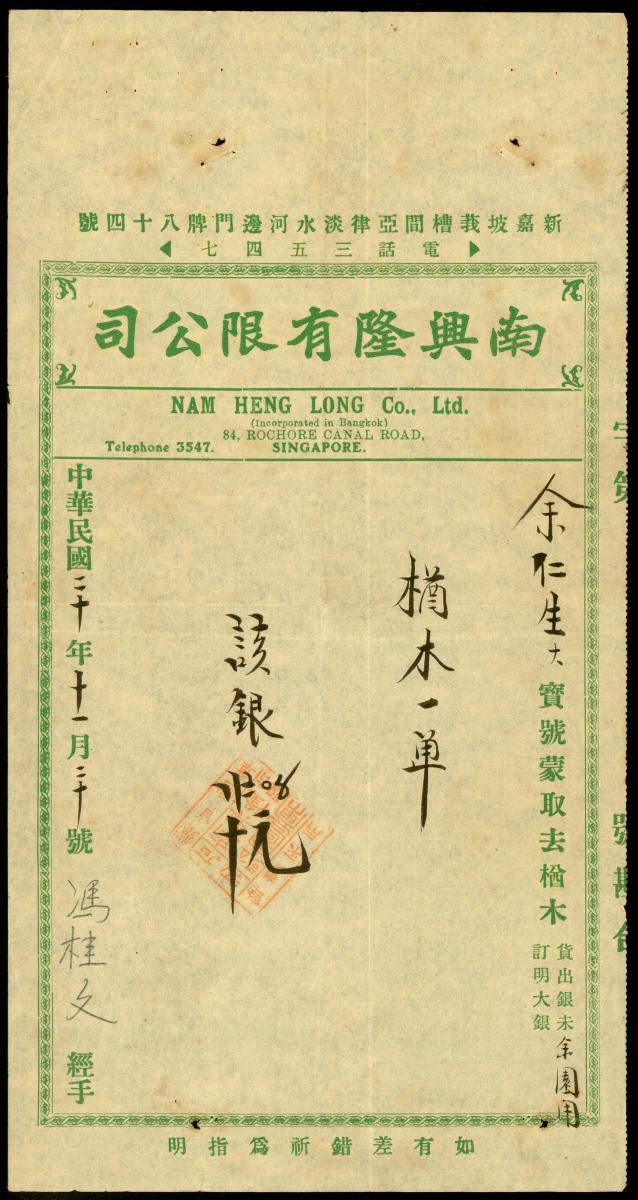 新嘉坡莪槽間亞律淡水河邊門牌八十四號
電話三五四七
南興隆有限公司
NAM HENG LONG Co., Ltd.
(Incorporated in Bangkok)
84, ROCHORE CANAL ROAD,
Telephone 3547. SINGAPORE.
余仁生大寶號蒙取去楢木
貨出銀未
訂明大銀
余園用
楢木一單
該銀
元
中華民國二十年十一月二十號
馮桂文 經手
如有差錯祈為指明